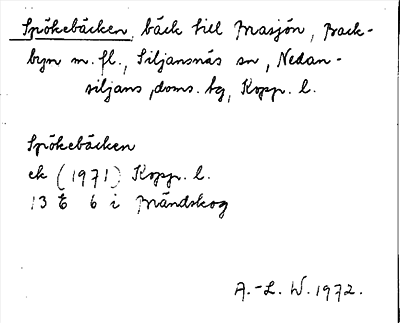 Spökebäcken, bäck till Prasjön, Back-
byn m. fl., Siljansnäs sn, Nedan-
siljans doms. tg, Kopp. l.
Spökebäcken
ek (1971) Kopp. l.
13 E 6 i Brändskog
A.-L. W. 1972.